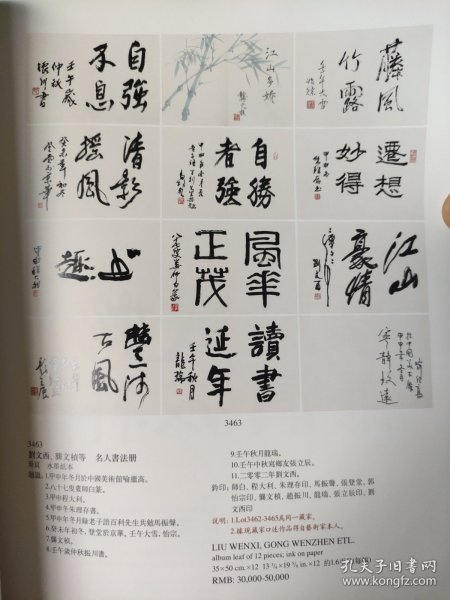 藤風
竹露
壬午大雪
江山多嬌
龔文楨
自強
不息
壬午歲
仲秋
振川書
遷想
妙得
自勝
者強
清影
搖風
癸未年初冬
江山
豪情
劉文西
風華
正茂
山趣
寧靜致遠
讀書
延年
壬午秋月
龍瑞
豐沛
古風
3463
3463
劉文西、龔文楨等　名人書法冊
冊頁　水墨紙本
題識：1.甲申年冬月於中國美術館喻繼高。
2.八十七叟董師白篆。
3.甲申程大利。
4.甲申年朱理存書。
5.甲申年冬月錄老子語百利先生共勉馬振聲。
6.癸未年初冬，登堂於京華，壬午大雪，怡宗。
7.龔文楨。
8.壬午歲仲秋振川書。
9.壬午秋月龍瑞。
10.壬午中秋寫鄉友張立辰。
11.二零零二年劉文西。
鈐印：師白、程大利、朱理存印、馬振聲、張登堂、郭
怡宗印、龔文楨、趙振川、龍瑞、張立辰印、劉
文西印
說明：1.Lot3462-3465爲同一藏家。
2.據現藏家口述作品得自藝術家本人。
LIU WENXI, GONG WENZHEN ETL.
album leaf of 12 pieces; ink on paper
35×50 cm.×12　13 ¾×19 ⅝ in.×12　約1.6平尺(每幅)
RMB: 30,000-50,000
孔夫子旧书网